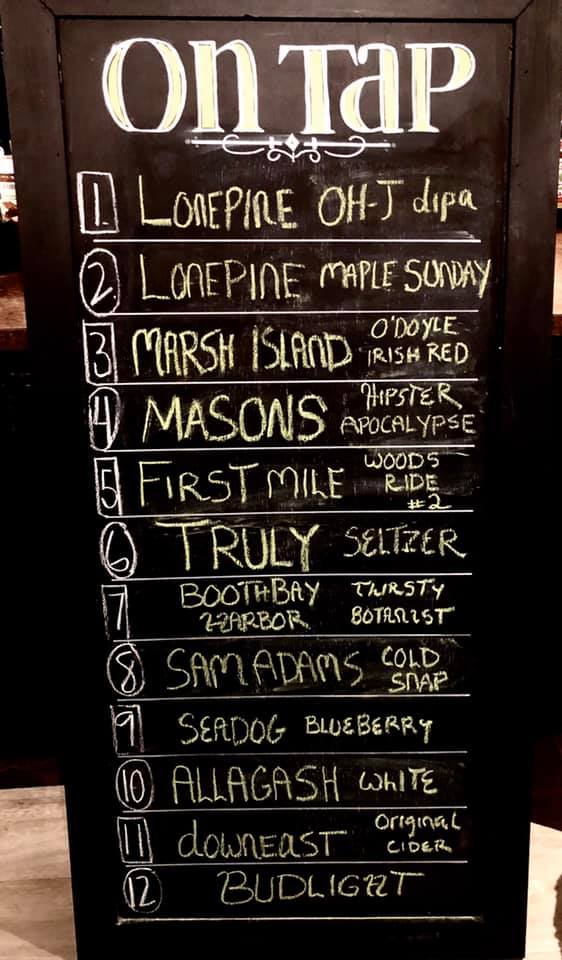 On TaP
1 LONEPINE OH-J dipa
2 LONEPINE MAPLE SUNDAY
3 MARSH ISLAND O'DOYLE
IRISH RED
4 MASONS HIPSTER
APOCALYPSE
5 FIRST MILE WOODS
RIDE
#2
6 TRULY SELTZER
7 BOOTHBAY THIRSTY
HARBOR BOTANIST
8 SAM ADAMS COLD
SNAP
9 SEADOG BLUEBERRY
10 ALLAGASH WHITE
11 downeast Original
CIDER
12 BUDLIGHT